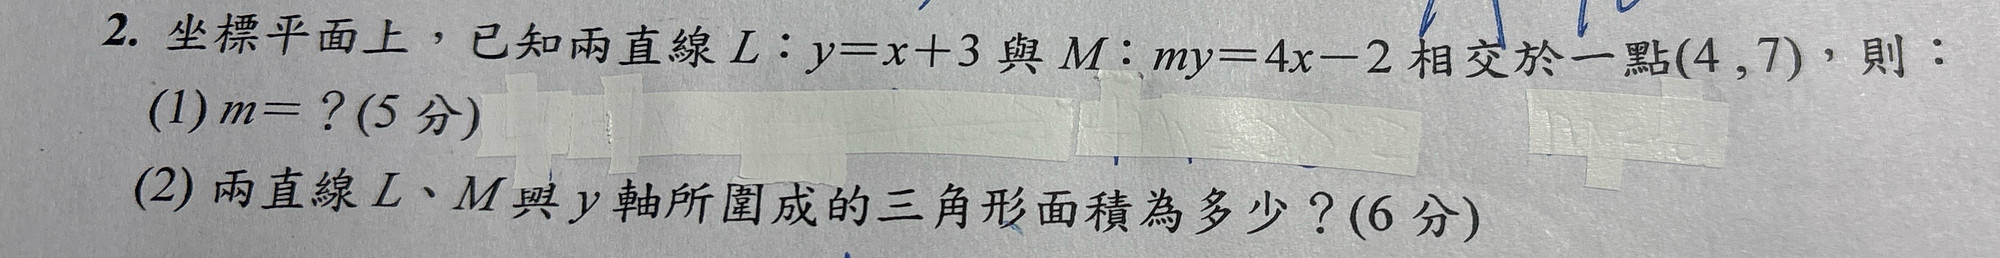 2. 坐標平面上，已知兩直線 L：y=x+3 與 M：my=4x−2 相交於一點(4,7)，則：
(1) m=？(5 分)
(2) 兩直線 L、M 與 y 軸所圍成的三角形面積為多少？(6 分)